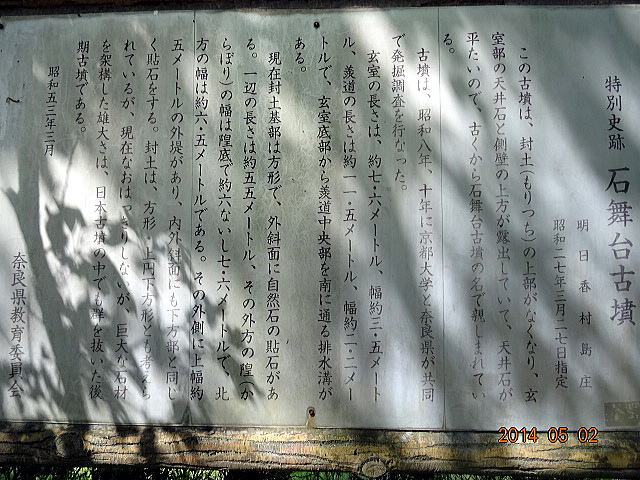 特別史跡 石舞台古墳
明日香村島庄
昭和二七年三月二七日指定
この古墳は、封土(もりつち)の上部がなくなり、玄
室部の天井石と側壁の上方が露出していて、天井石が
平たいので、古くから石舞台古墳の名で親しまれてい
る。
古墳は、昭和八年、十年に京都大学と奈良県が共同
で発掘調査を行なった。
玄室の長さは、約七・六メートル、幅約三・五メート
ル、羨道の長さは約一一・五メートル、幅約二・二メー
トルで、玄室底部から羨道中央部を南に通る排水溝が
ある。
現在封土基部は方形で、外斜面に自然石の貼石があ
る。一辺の長さは約五五メートル、その外方の隍(か
らぼり)の幅は隍底で約六ないし七・六メートルで、北
方の幅は約六・五メートルである。その外側に上幅約
五メートルの外堤があり、内外斜面にも下方部と同じ
く貼石をする。封土は、方形、上円下方形とも考えら
れているが、現在なおはっきりしないが、巨大な石材
を架構した雄大さは、日本古墳の中でも群を抜いた後
期古墳である。
昭和五三年三月
奈良県教育委員会
2014 05 02